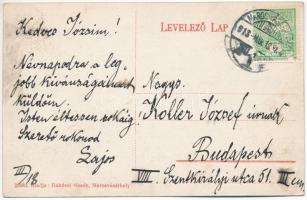 LEVELEZŐ LAP
Kedves Józsim!
Névnapodra a leg-
jobb kívánságaimat
küldöm.
Isten éltessen sokáig
Szerető rokonod
Lajos
III/18
Nagys.
Koller József úrnak
Budapest
VIII. Szentkirályi utca 51. III em.
Kiadja: Marosvásárhely